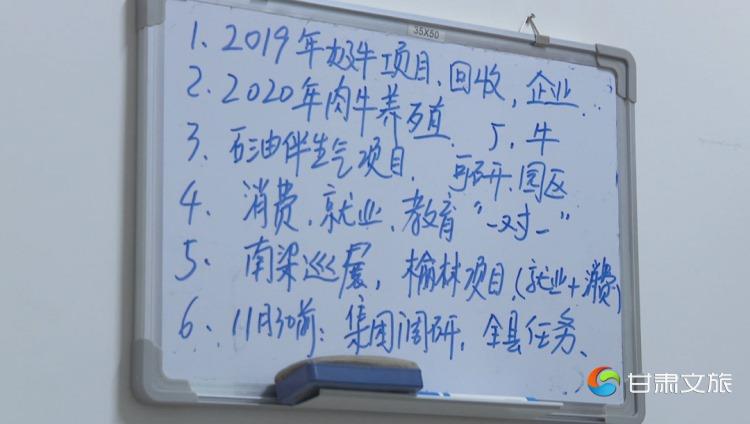 35X50
1、2019年极牛项目、回收，企业
2、2020年肉牛养殖、5，牛
3、石油伴生气项目、可研、园区
4、消费、就业、教育“一对一”
5、南梁巡展，榆林项目，（就业+消费）
6、11月30前：集团调研，全县任务、
甘肃文旅